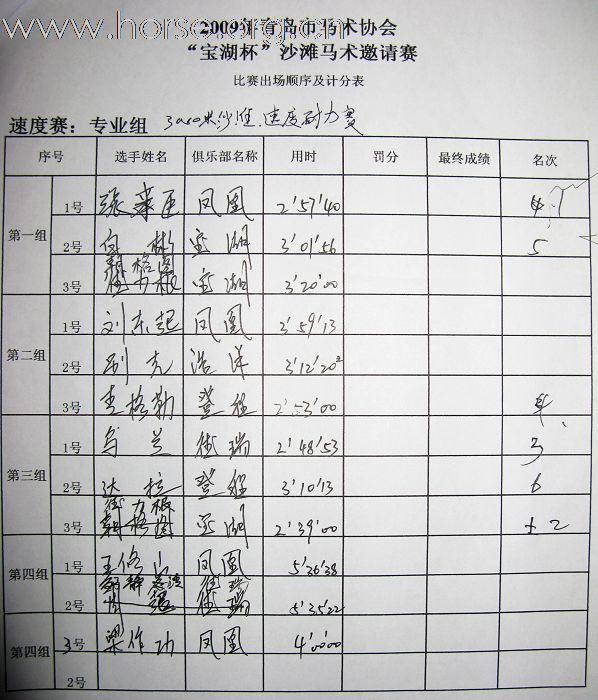 www.horse.org.cn
2009年青岛市马术协会
“宝湖杯”沙滩马术邀请赛
比赛出场顺序及计分表
速度赛：专业组 3000米沙滩速度耐力赛
序号 选手姓名 俱乐部名称 用时 罚分 最终成绩 名次
第一组
1号 凤凰 2'57'40
2号 白彬 宝湖 3'01'56 5
3号 宝湖 3'20'00
第二组
1号 刘东起 凤凰 3'59'13
2号 别克 浩洋 3'12'20
3号 查格勒 登程 2'53'00 4
第三组
1号 乌兰 2'48'53 3
2号 达拉 登程 3'10'13 6
3号 宝湖 2'39'00 2
第四组
1号 凤凰 5'36'38
2号 5'35'22
第四组
3号 梁作功 凤凰 4'00'00
2号